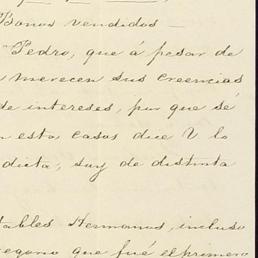 Bonos vendidos —
Pedro, que a pesar de
merecen sus creencias
de intereses, por que sé
en estos casos dice V lo
dicta, soy de distinta
tables Hermanos, incluso
que fué el primero